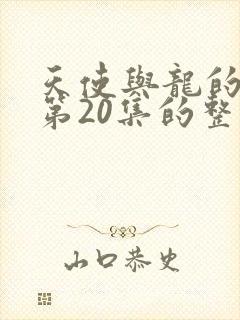 天使與龍的
第20集的整
山口恭史